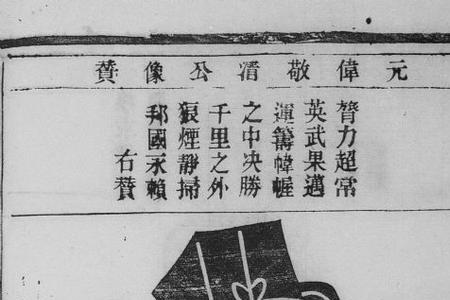 元偉敬清公像贊
膂力超常
英武果邁
運籌幃幄
之中决勝
千里之外
狼煙靜掃
邦國永賴
右贊